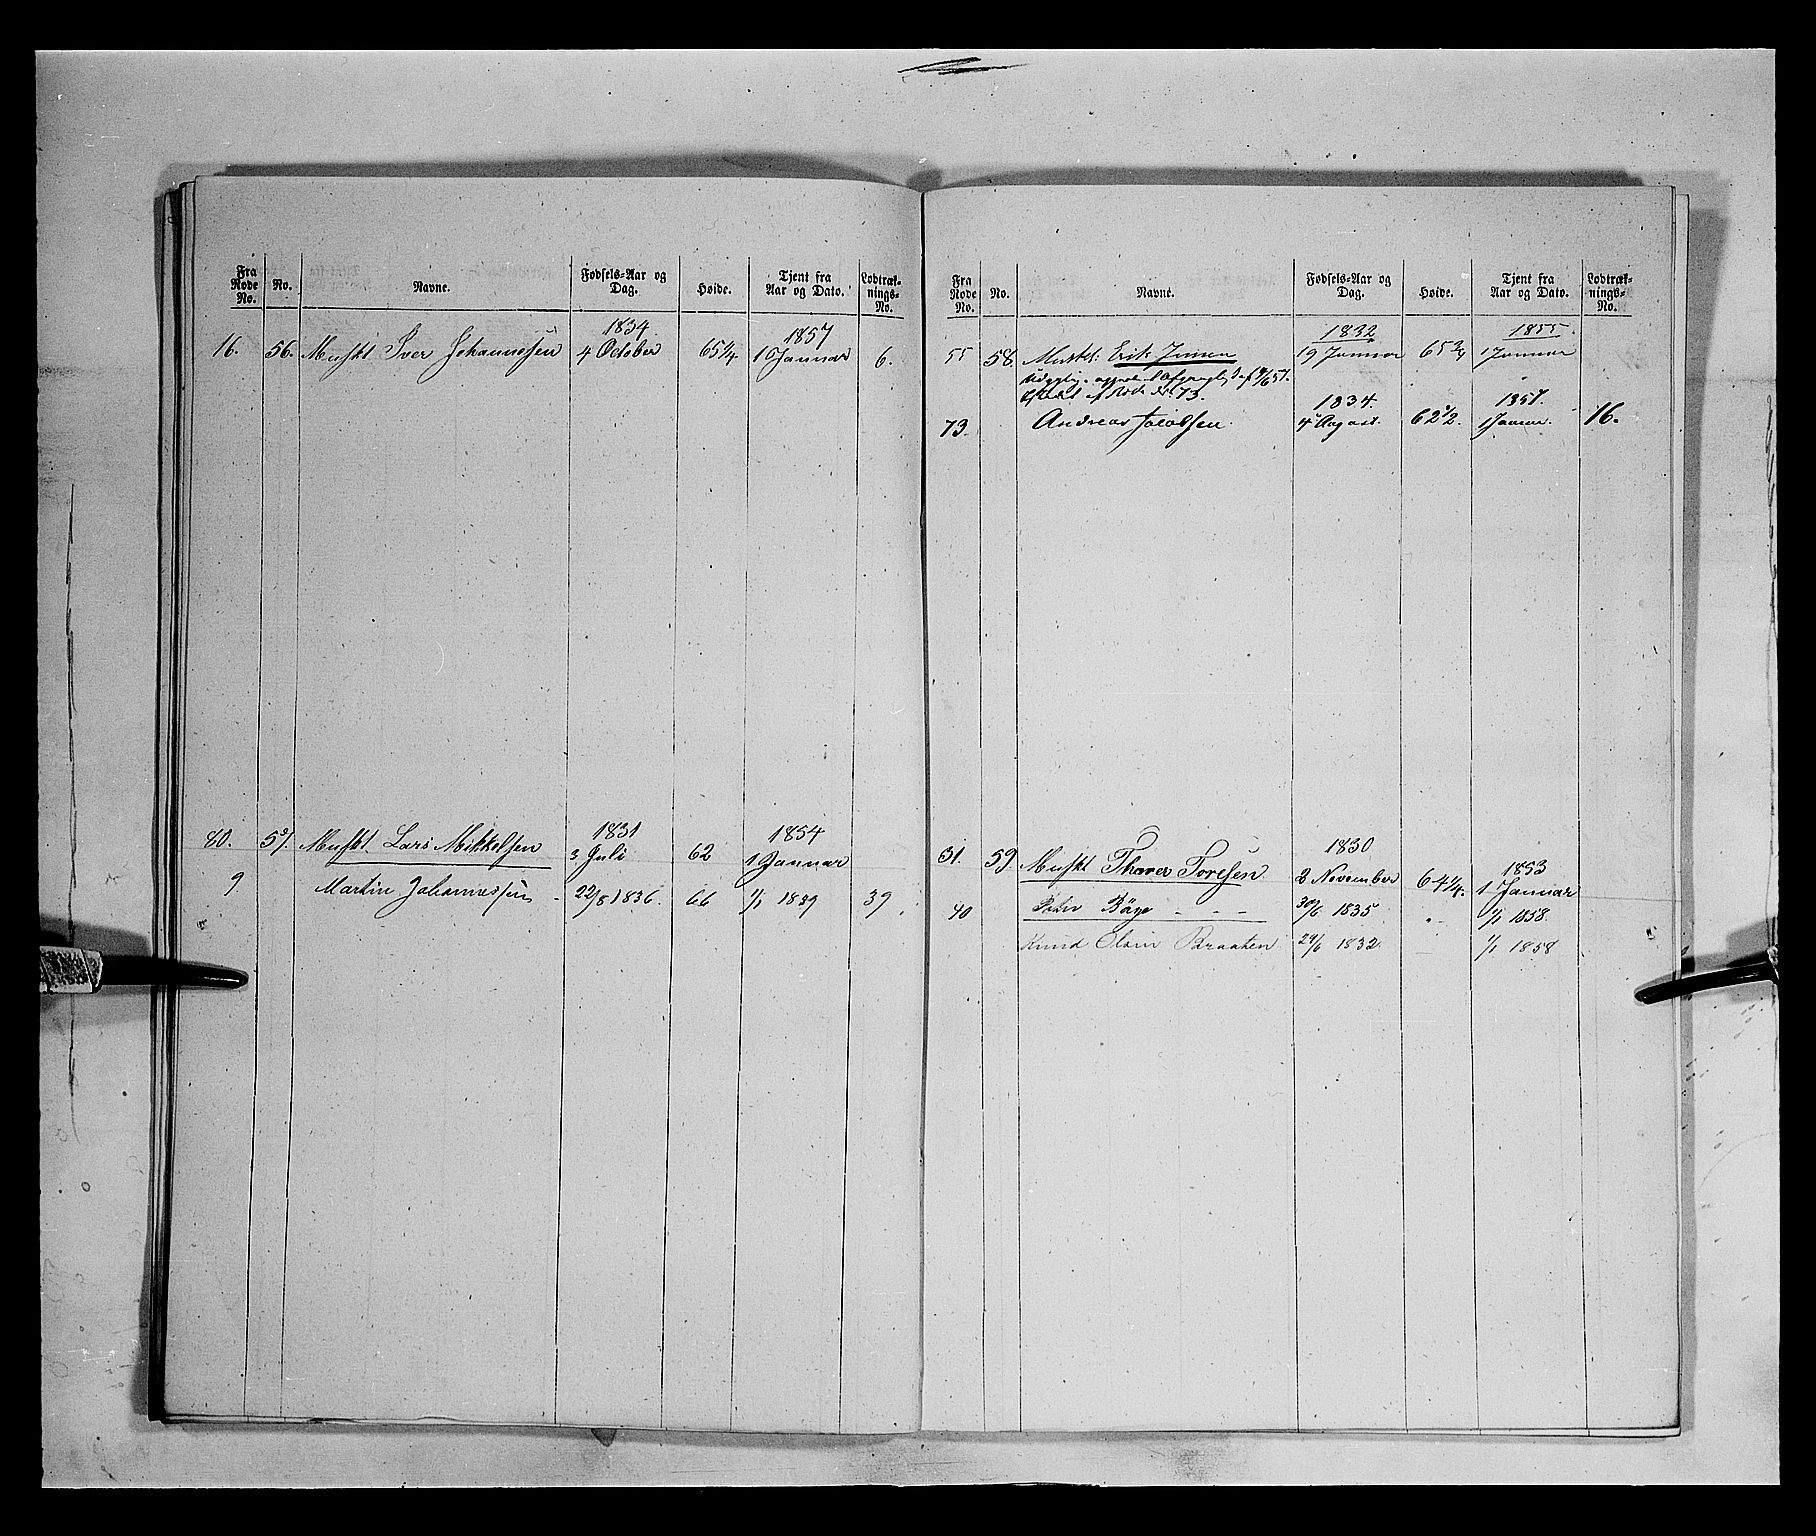 Fra Rode No. No. Navne. Fødsels-Aar og Dag. Høide. Tjent fra Aar og Dato. Lodtræk-nings-No.
1834 1857
16. 56. Muskt Iver Johannessen 4 October 65 1/4. 1 Januar 6.
1831 1854
80. 57. Muskt Lars Mikkelsen 3 Juli 62 1 Januar
9 Martin Johannessen 22/8 1836. 66 1/1 1859 39.
Fra Rode No. No. Navne. Fødsels-Aar og Dag. Høide. Tjent fra Aar og Dato. Lodtræk-nings-No.
1832 1855.
55 58. Musket: Erik Jensen 19 Januar 65 3/4 1 Januar
af Rode No. 73.
1834. 1857.
73. Andreas Jacobsen. 4 August. 62 1/2. 1 Januar. 16.
1830 1853
31. 59. Muskt Thorer Toresen. 3 November 64 1/4. 1 Januar
40 Peder Bøye - - - 30/6 1835 " - 1/1 1858.
Knud Olsen Braaten 29/6 1832. 1/1 1858